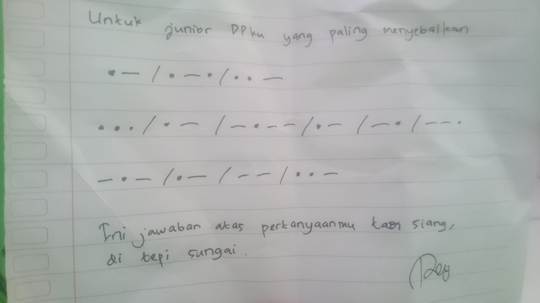 Untuk junior DPku yang paling menyebalkan
•— / •—• / ••—
••• / •— / —•—— / •— / —• / ——•
—•— / •— / —— / ••—
Ini jawaban atas pertanyaanmu siang,
di tepi sungai.